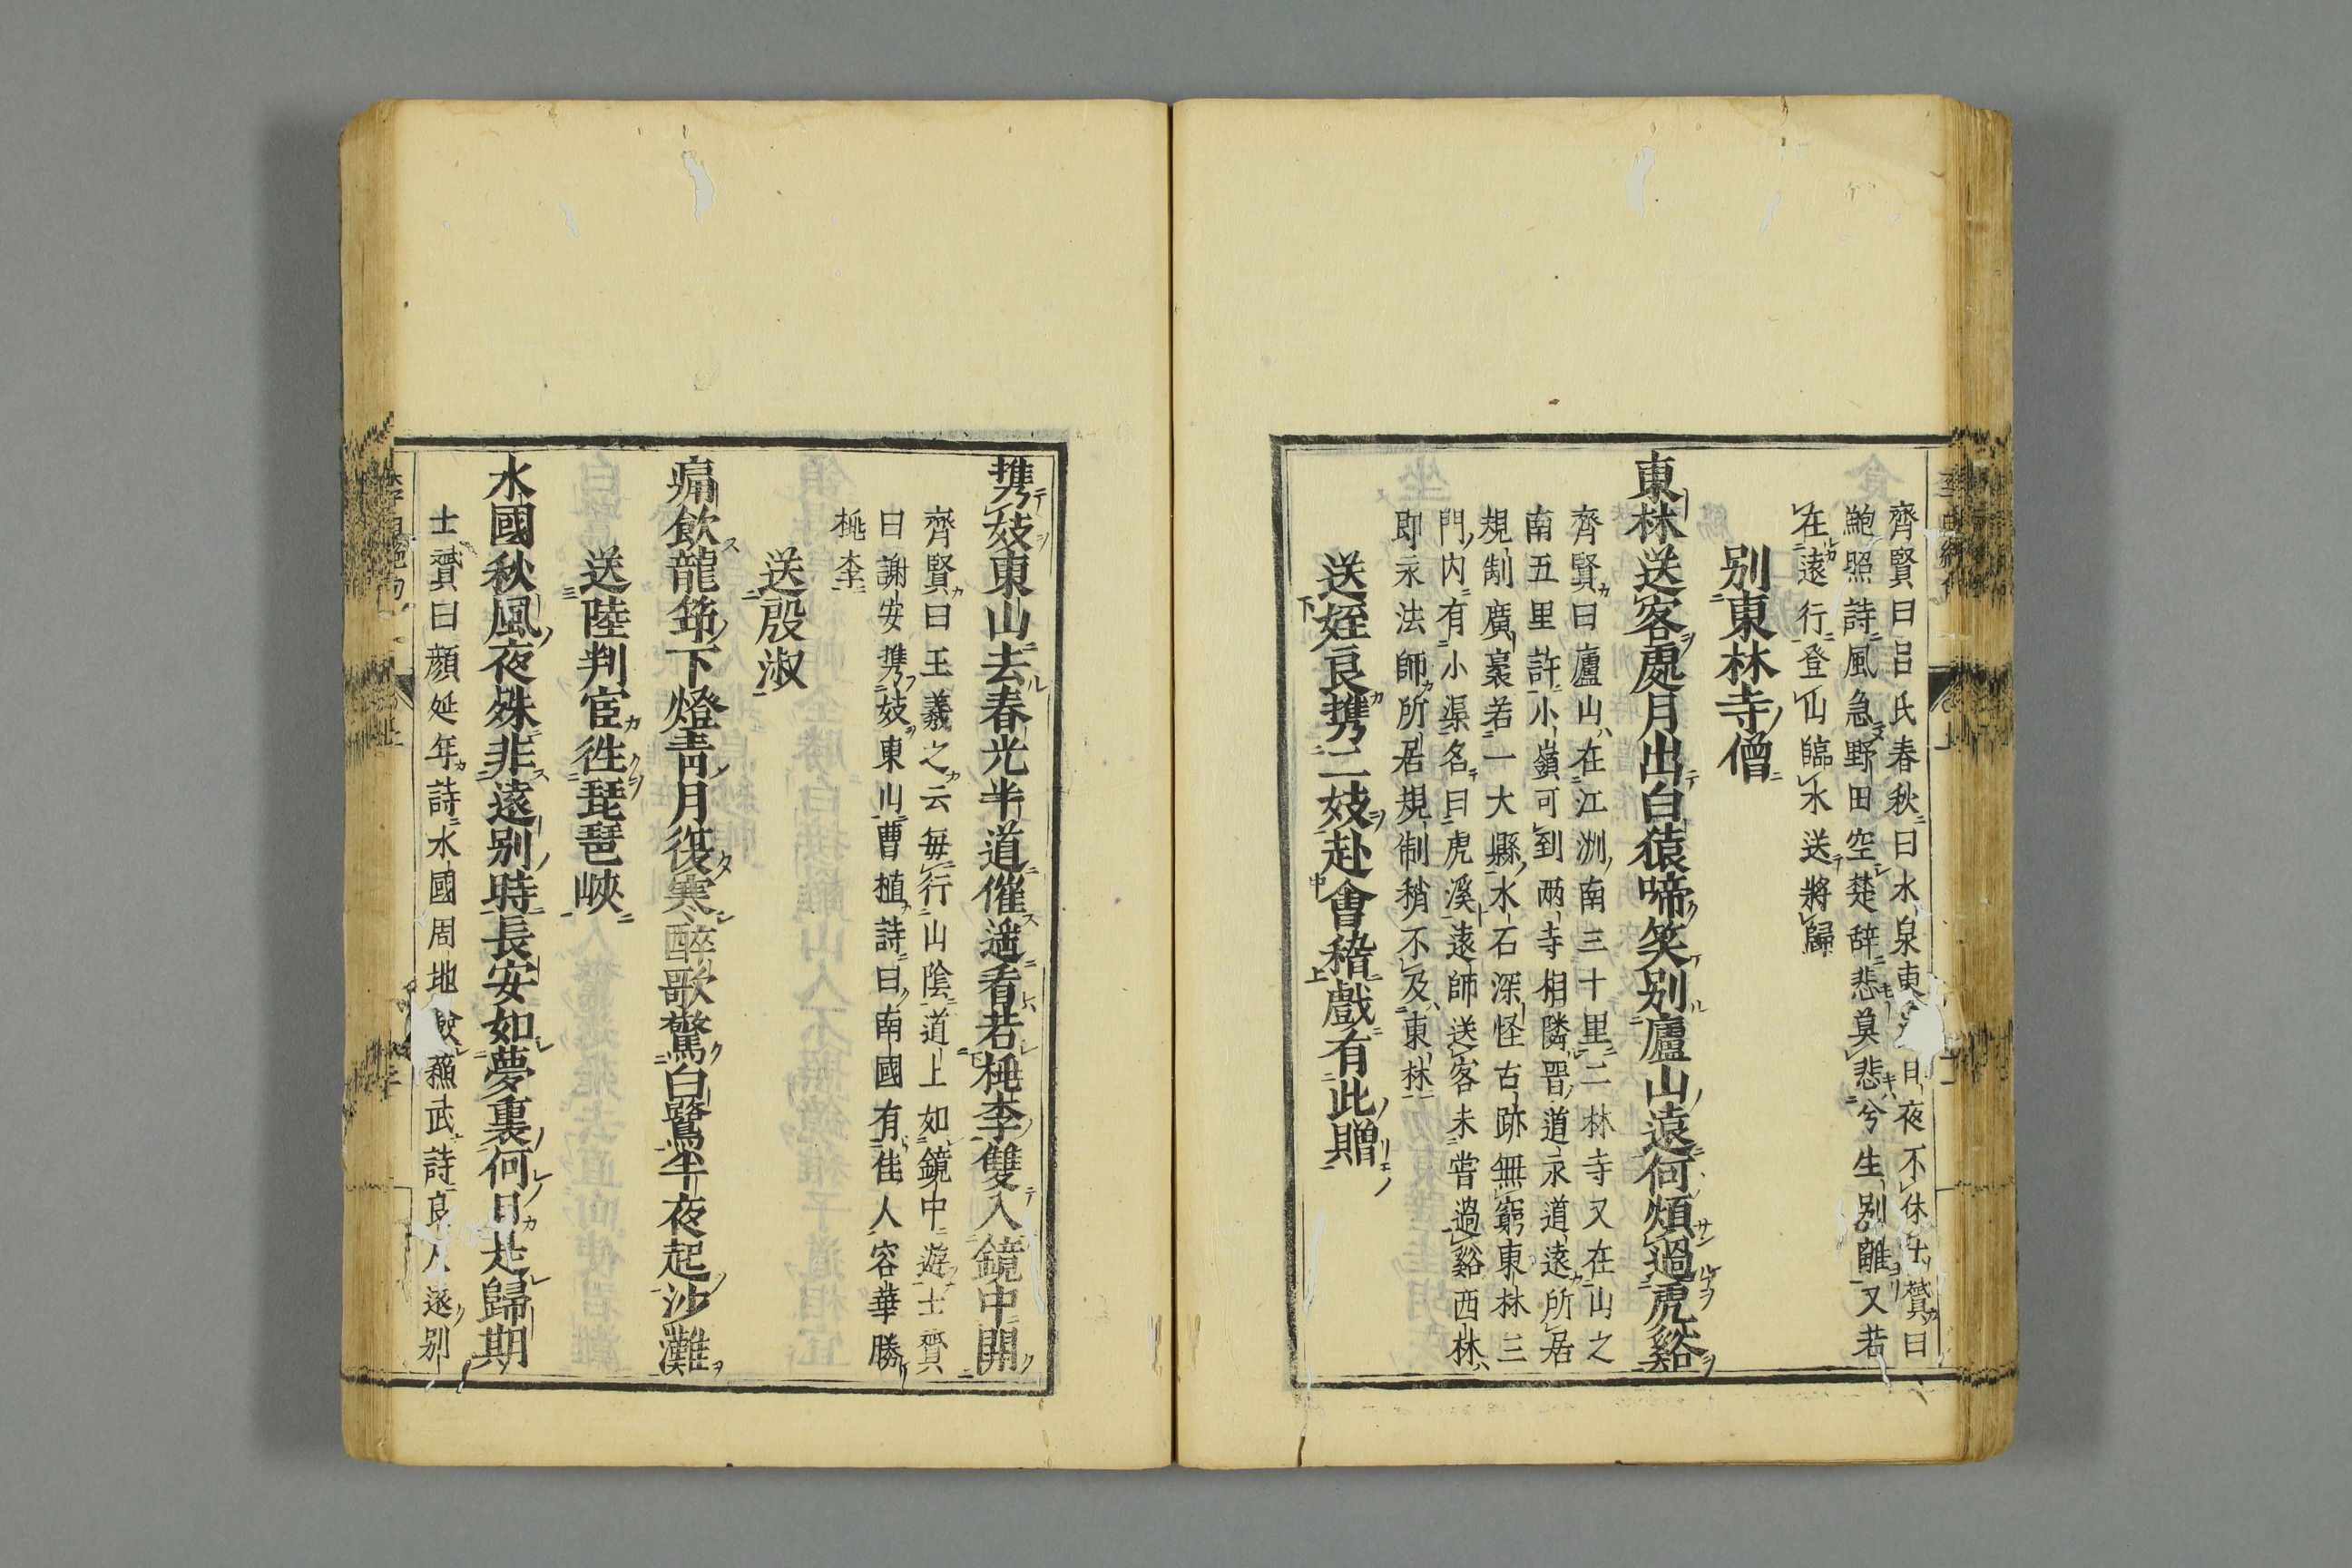 齊賢曰呂氏春秋曰水泉東日夜不休士贇曰
鮑照詩風急野田空楚辞悲莫悲兮生別離又若
在遠行登山臨水送將歸
別東林寺僧
東林送客處月出白猿啼笑別廬山遠何煩過虎谿
齊賢曰廬山在江州南三十里二林寺又在山之
南五里許小嶺可到兩寺相隣晋道永道遠所居
規制廣裏若一大縣水石深怪古跡無窮東林三
門内有小渠名曰虎溪遠師送客未嘗過谿西林
即永法師所居規制稍不及東林
送姪良攜二妓赴會稽戲有此贈
攜妓東山去春光半道催遥看若桃李雙入鏡中開
齊賢曰王羲之云毎行山陰道上如鏡中遊士贇
曰謝安攜妓東山曹植詩曰南國有佳人容華勝
桃李
送殷淑
痛飲龍筇下燈青月復寒醉歌驚白鷺半夜起沙灘
送陸判官往琵琶峽
水國秋風夜殊非遠別時長安如夢裏何日是歸期
士贇曰顔延年詩水國周地蘇武詩良人遠別